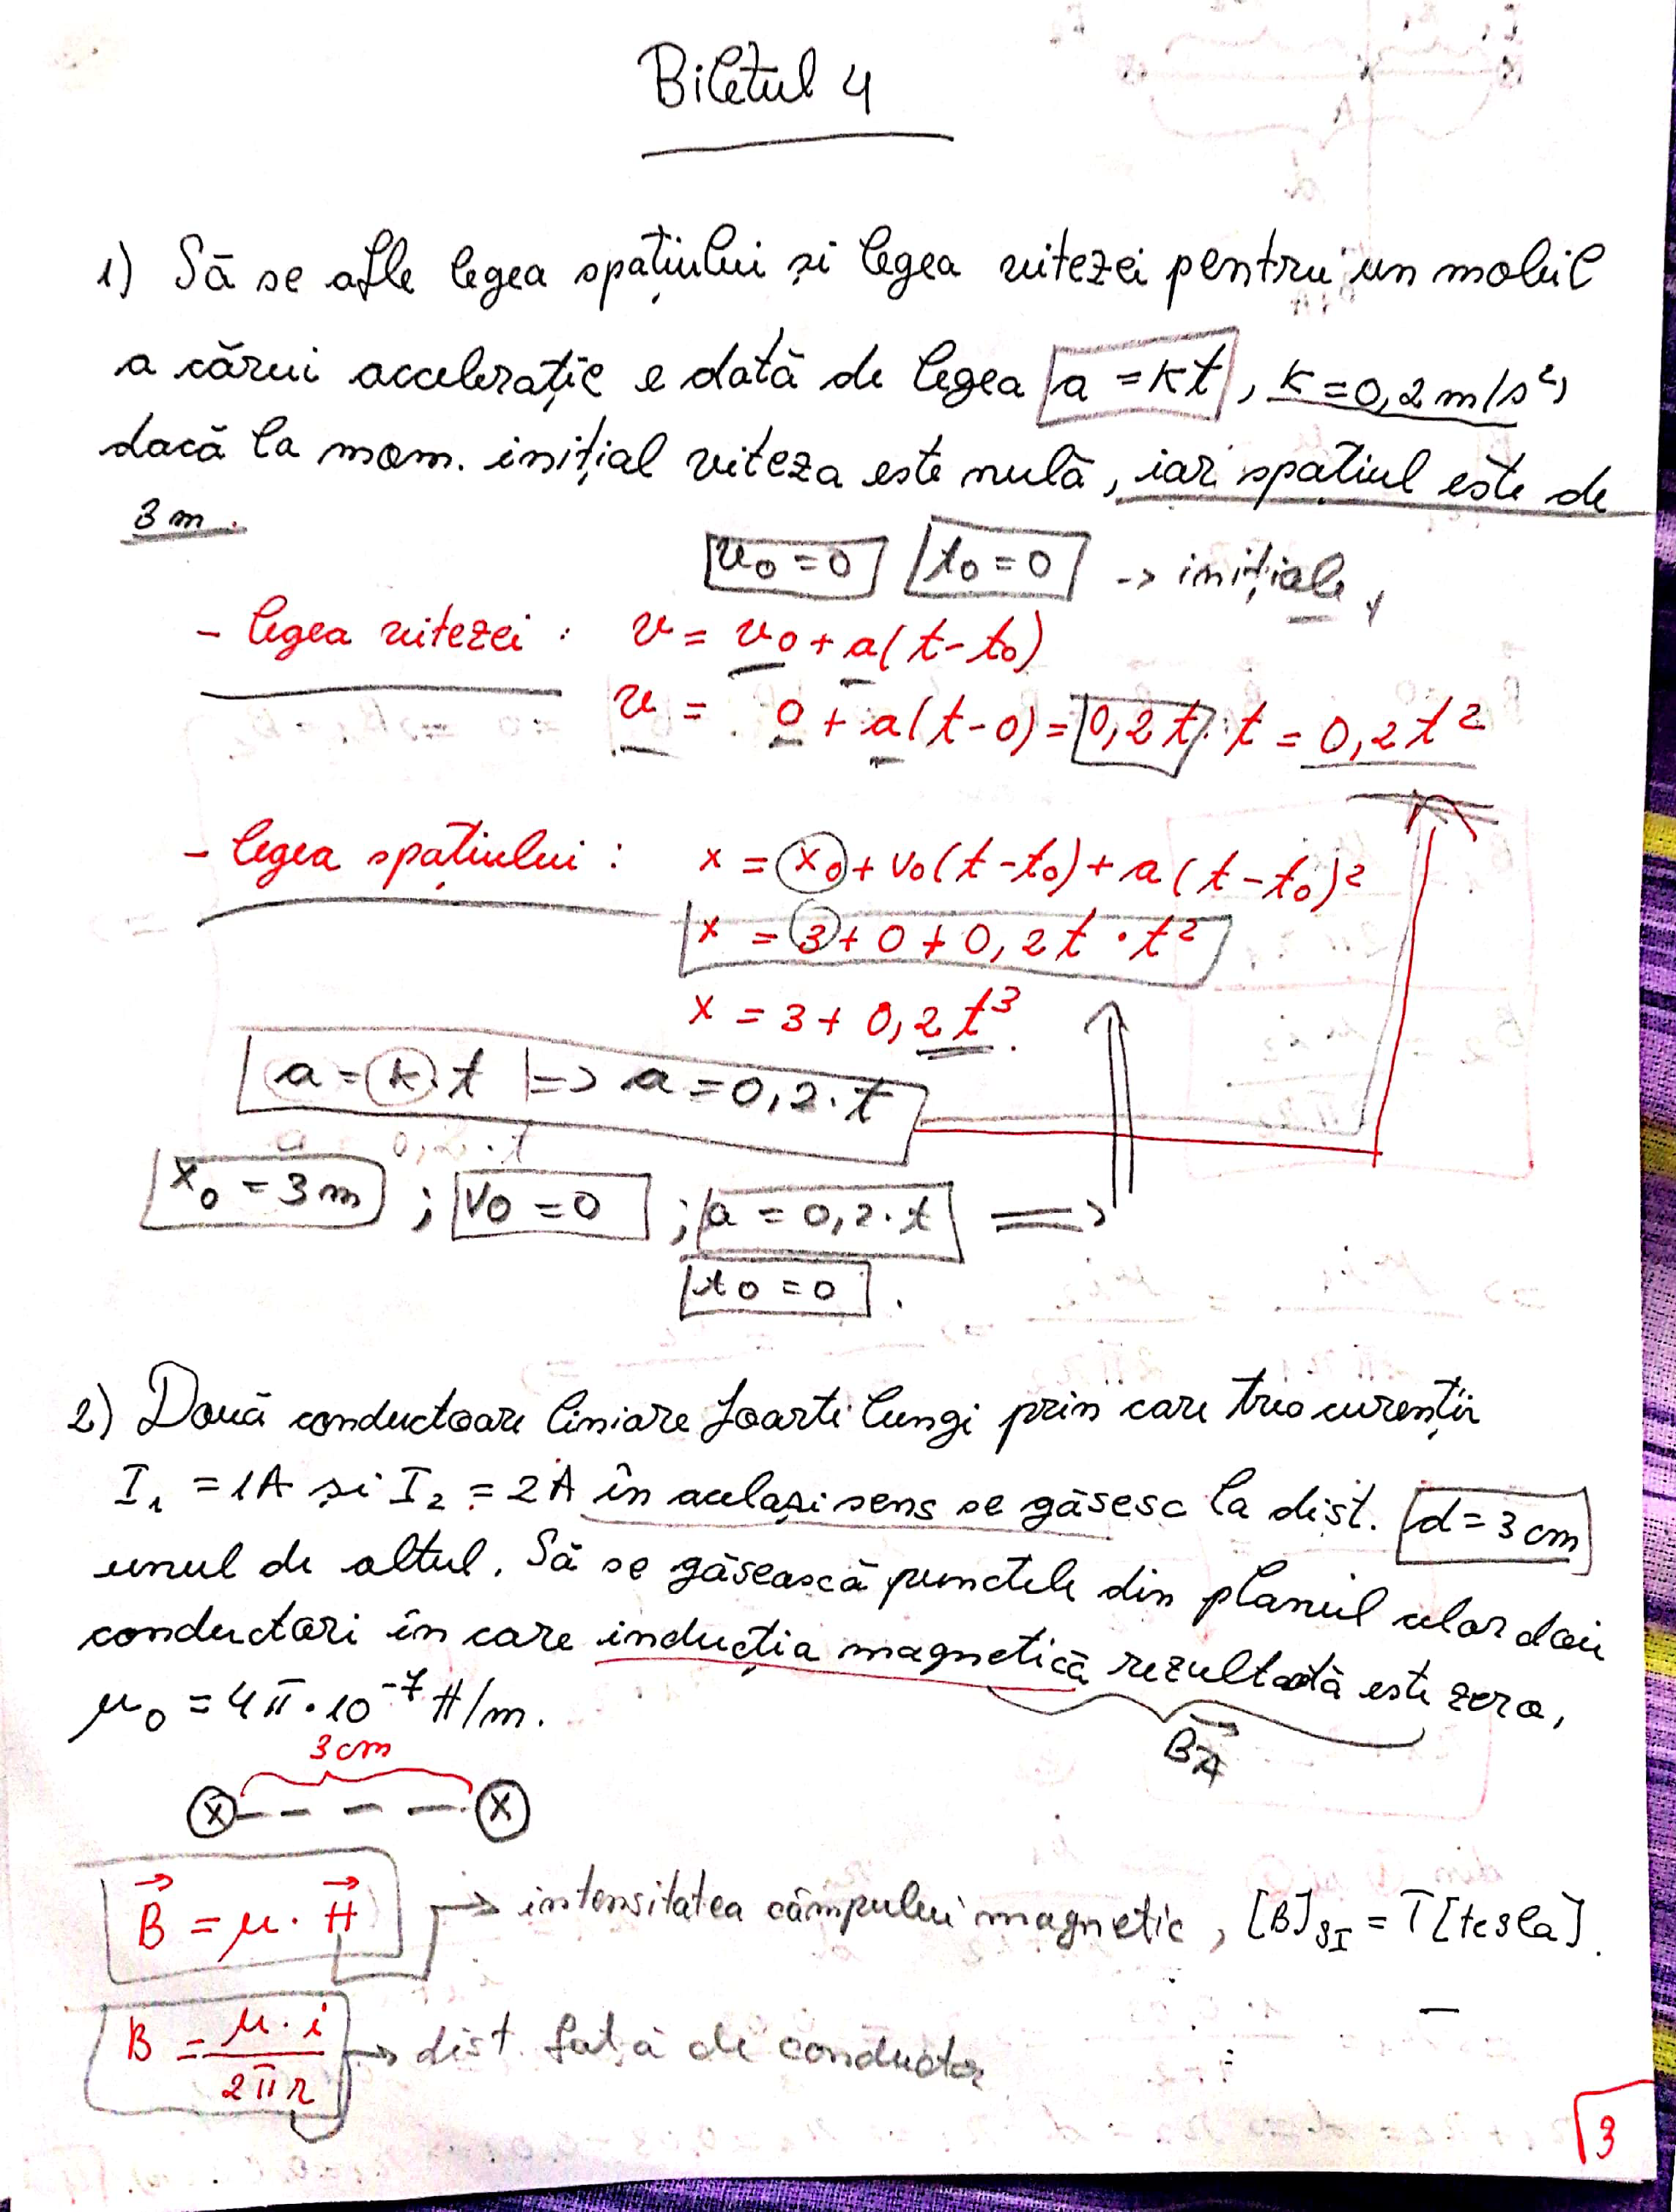 Biletul 4
1) Să se afle legea spațiului și legea vitezei pentru un mobil
a cărui accelerație e dată de legea a = kt, k = 0,2 m/s²,
dacă la mom. inițial viteza este nulă, iar spațiul este de
3 m.
v₀ = 0 t₀ = 0 -> inițiale
- legea vitezei : v = v₀ + a(t - t₀)
v = 0 + a(t - 0) = 0,2 t · t = 0,2 t²
- legea spațiului : x = x₀ + v₀(t - t₀) + a(t - t₀)²
x = 3 + 0 + 0,2 t · t²
x = 3 + 0,2 t³.
a = k · t => a = 0,2 · t
x₀ = 3 m ; v₀ = 0 ; a = 0,2 · t =>
t₀ = 0 .
2) Două conductoare liniare foarte lungi prin care trec curenții
I₁ = 1A și I₂ = 2A în același sens se găsesc la dist. d = 3 cm
unul de altul. Să se găsească punctele din planul celor doi
conductori în care inducția magnetică rezultată este zero,
μ₀ = 4π · 10⁻⁷ H/m.
B⃗_A
3 cm
ⓧ - - - - ⓧ
B⃗ = μ · H⃗ -> intensitatea câmpului magnetic, [B]_SI = T [tesla].
B = μ · i / 2πr -> dist. față de conductor
3